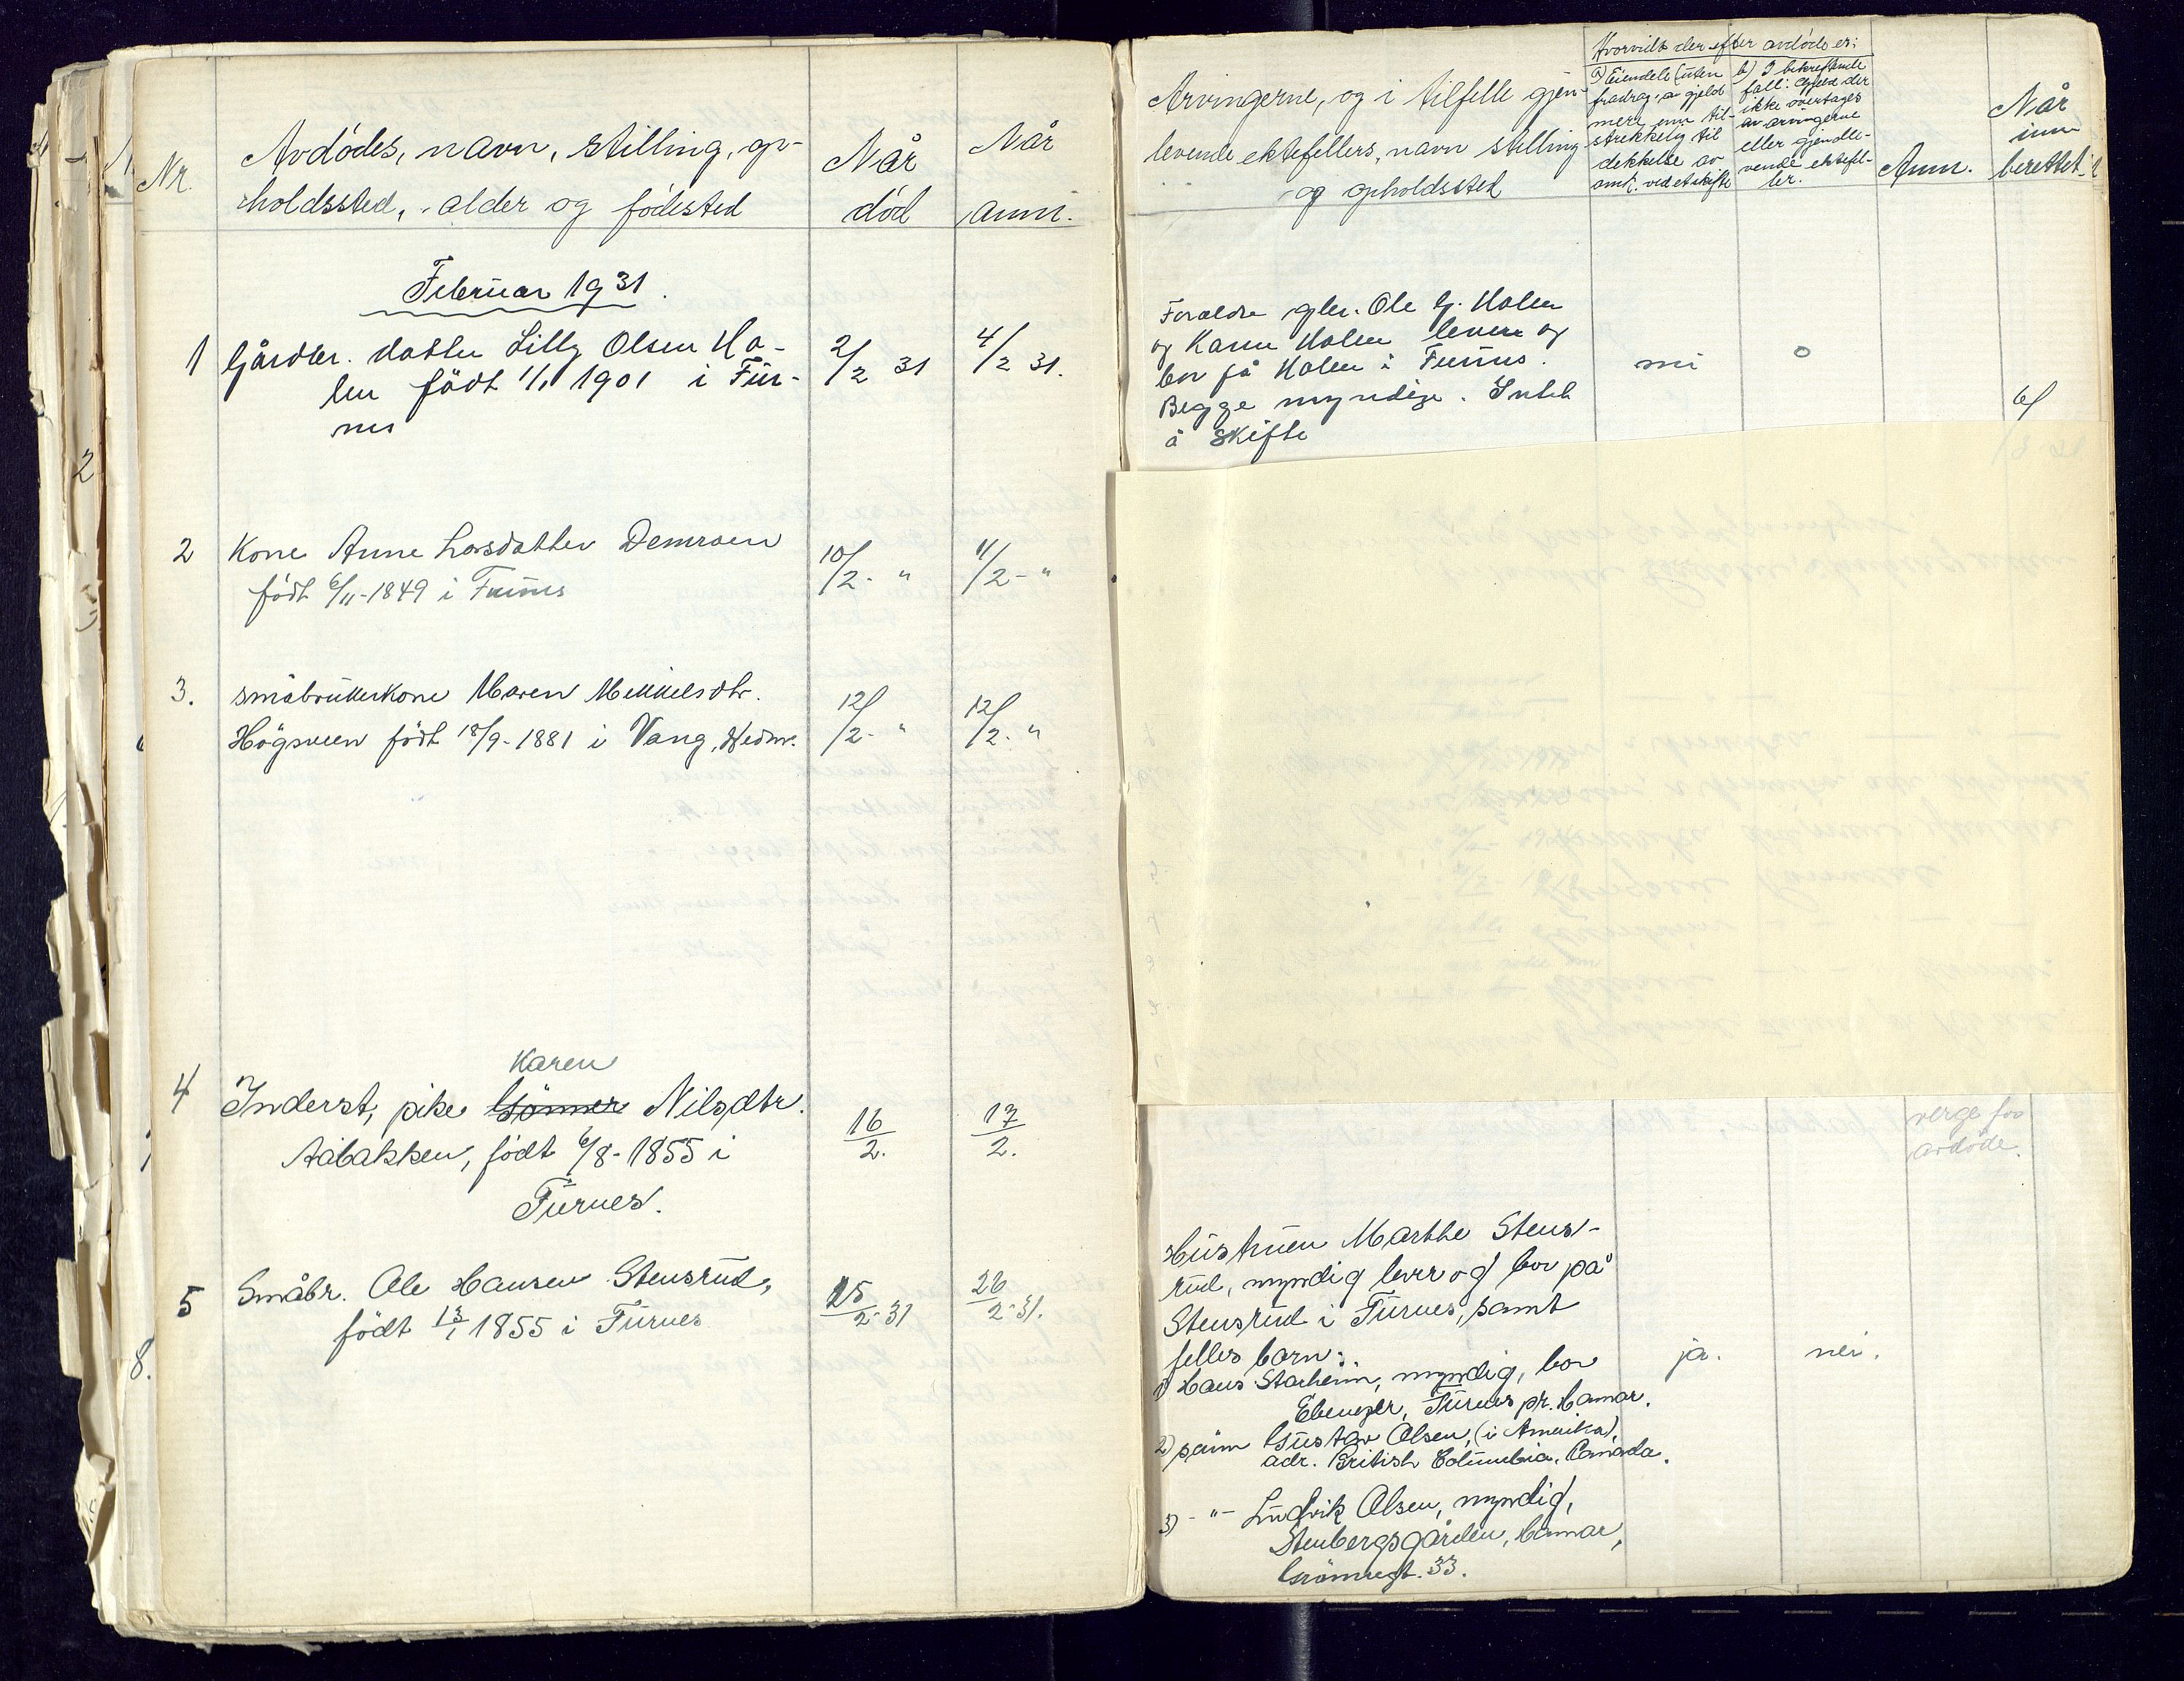 Nr.
Avdödes, navn, stilling, op-
holdssted, alder og födested
Når
död
Når
anm.
Februar 1931.
1
Gårdbr. datter Lilly Olsen Ho-
len födt 1/1 1901 i Fur-
nes
2/2 31
4/2 31.
2
Kone Anne Larsdatter Demroen
födt 6/11-1849 i Furnes
10/2- "
11/2- "
3.
Småbrukerkone Maren Mikkelsdtr.
Högsveen födt 18/9-1881 i Vang, Hedm.
12/2- "
12/2- "
4
Karen
Inderst, pike Gönner Nilsdtr.
Aabakken, födt 6/8-1855 i
Furnes.
16/2.
17/2.
5
Småbr. Ole Hansen Stensrud,
födt 13/1 1855 i Furnes
25/2-31
26/2-31.
2
8.
Arvingerne, og i tilfelle gjen-
levende ektefellers, navn stilling
og opholdssted
Hvorvidt der efter avdöde er:
a) Eiendele (uten
fradrag av gjeld
mere enn til-
strekkelig til
dekkelse av
omk. ved et skifte
b) I bekreftende
fall: Gjeld der
ikke overtages
av arvingerne
eller gjenle-
vende ektefel-
ler.
Anm.
Når
inn
berettet
Foreldre gbr. Ole G. Holen
og Karen Holen lever og
bor på Holen i Furnes.
Begge myndige. Intet
å skifte
nei
o
6/
verge for
avdöde.
Hustruen Marthe Stens-
rud, myndig lever og bor på
Stensrud i Furnes, samt
felles barn:
1) Hans Starheim, myndig, bor
Ebenezer, Furnes pr. Hamar.
2) sönn Gustav Olsen, (i Amerika),
adr. British Columbia, Canada.
3) - " - Ludvik Olsen, myndig,
Stenbergsgården, Hamar,
Grönnegt. 33.
ja.
nei.